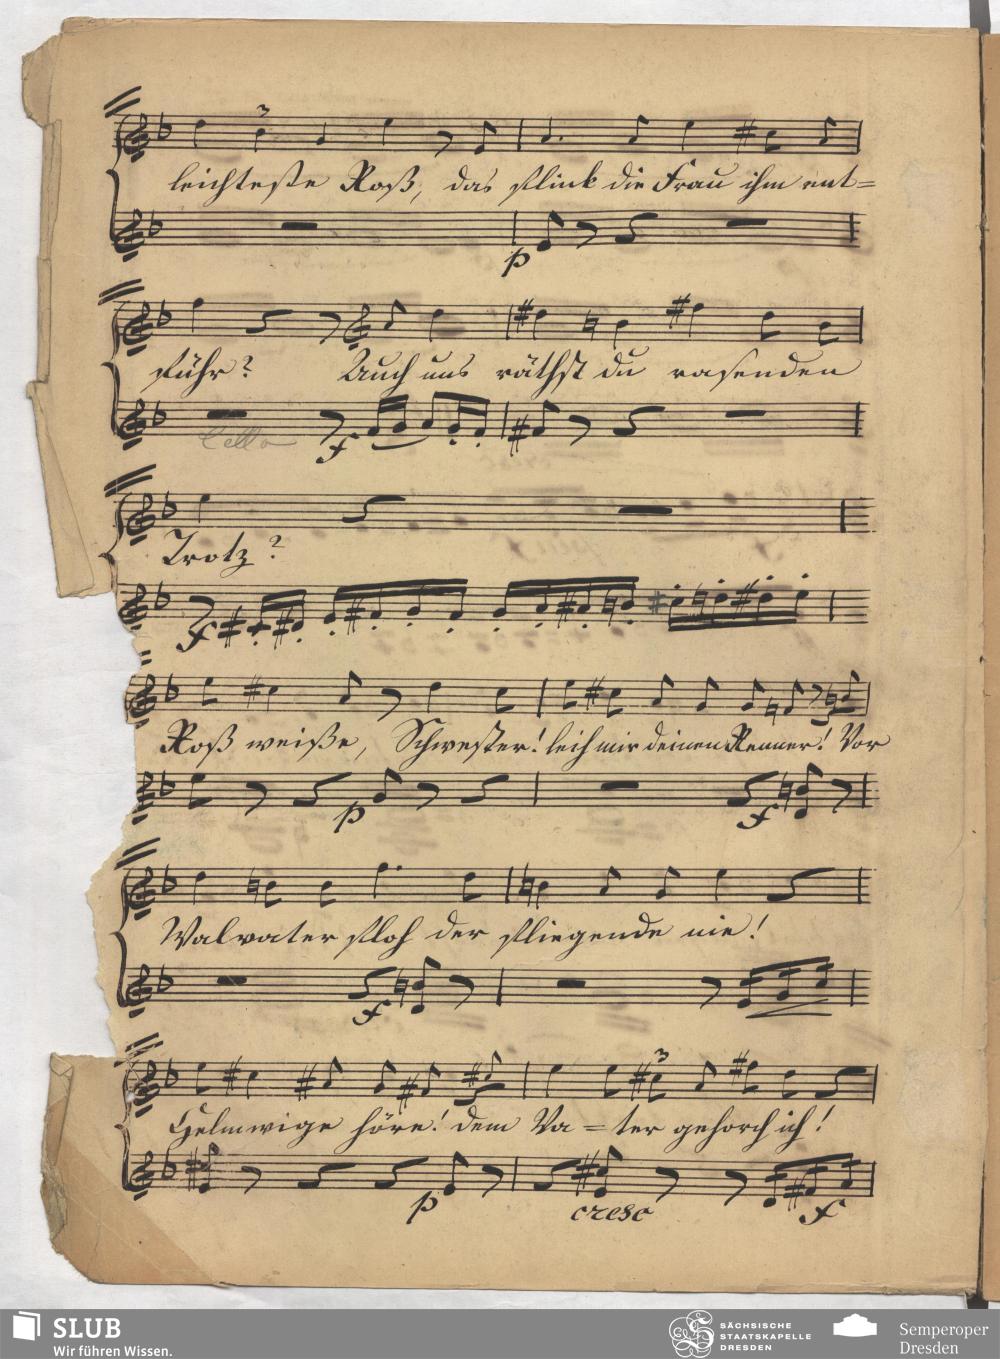 3
leichteste Roß, das flink die Frau ihm ent=
p
führ? Auch uns räthst du rasenden
Cello
f
Trotz?
f
Roß weiße, Schwester! leih mir deinen Renner! Vor
p f
Walvater floh der fliegende nie!
f
3
Helmwige höre! dem Va=ter gehorch ich!
p cresc f
SLUB
Wir führen Wissen.
SÄCHSISCHE
STAATSKAPELLE
DRESDEN
Semperoper
Dresden